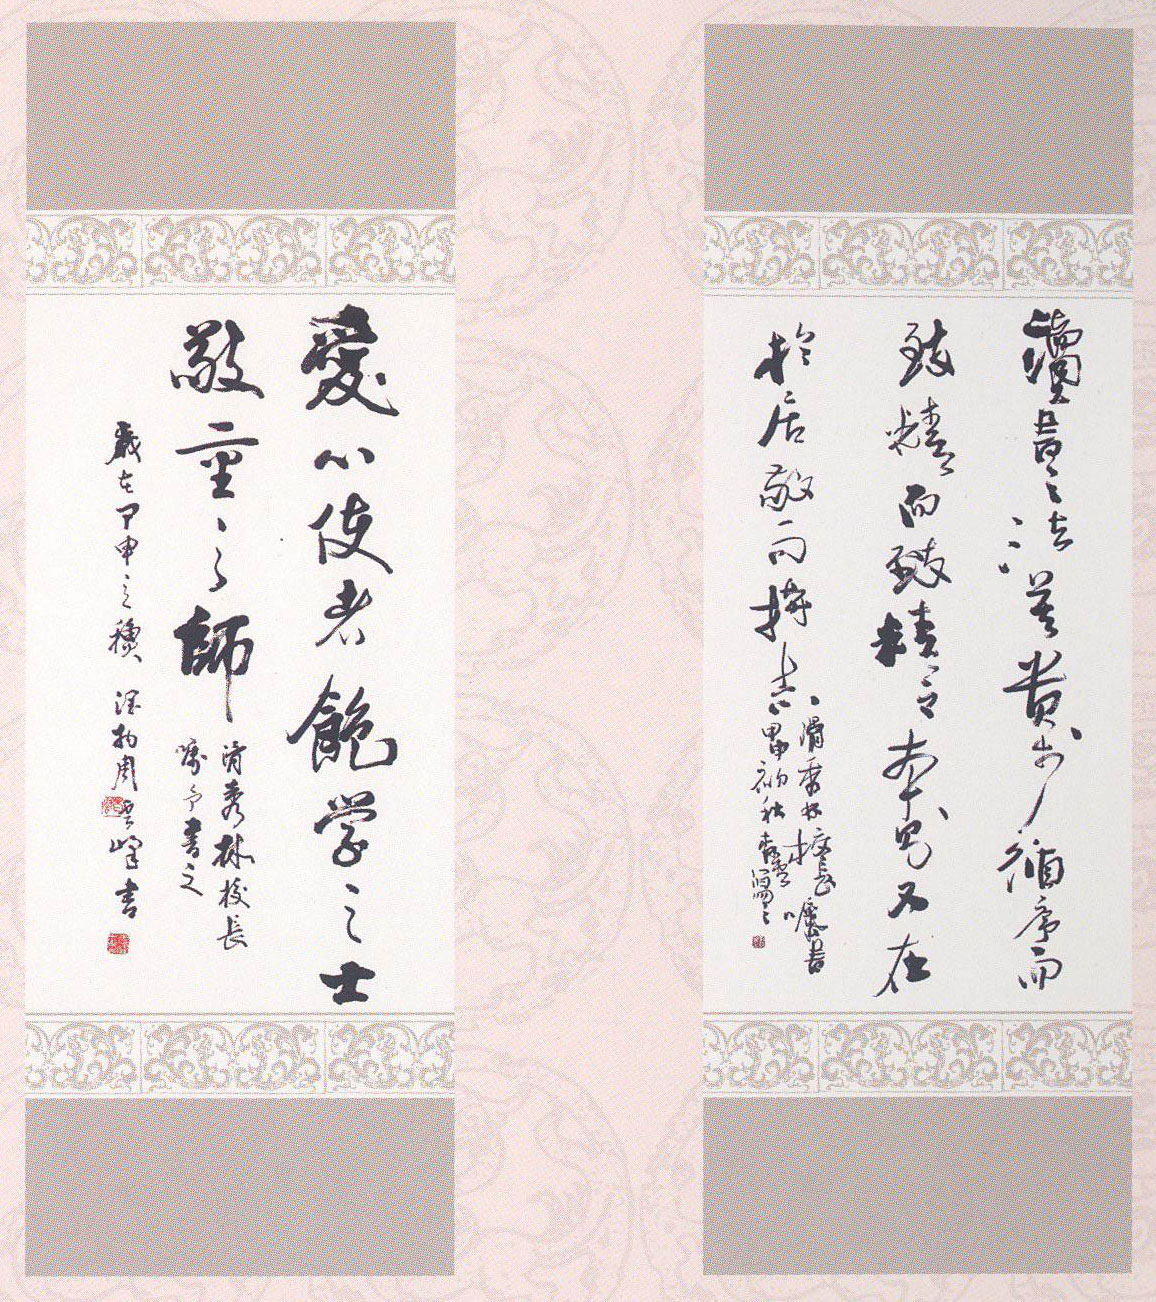 讀書之法莫貴於循序而
致精而致精之本則又在
於居敬而持志
秀林校長囑書
甲申初秋
愛心使者飽学之士
敬重之師
秀林校長
囑予書之
歲在甲申之穐 周雲峰書